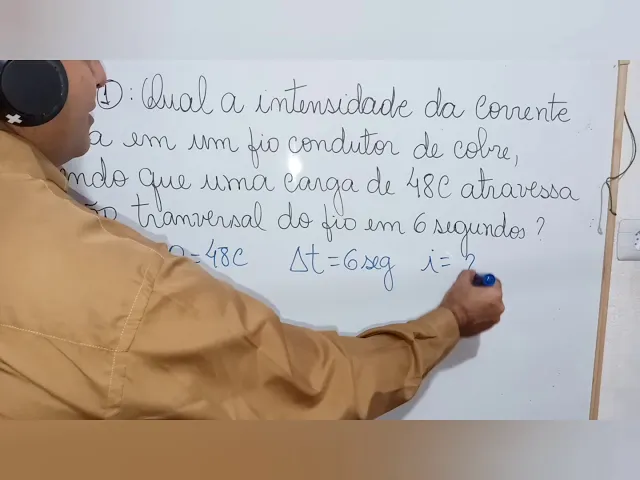 ①: Qual a intensidade da corrente
a em um fio condutor de cobre,
ndo que uma carga de 48C atravessa
ão tranversal do fio em 6 segundos?
Q=48C Δt=6seg i=?